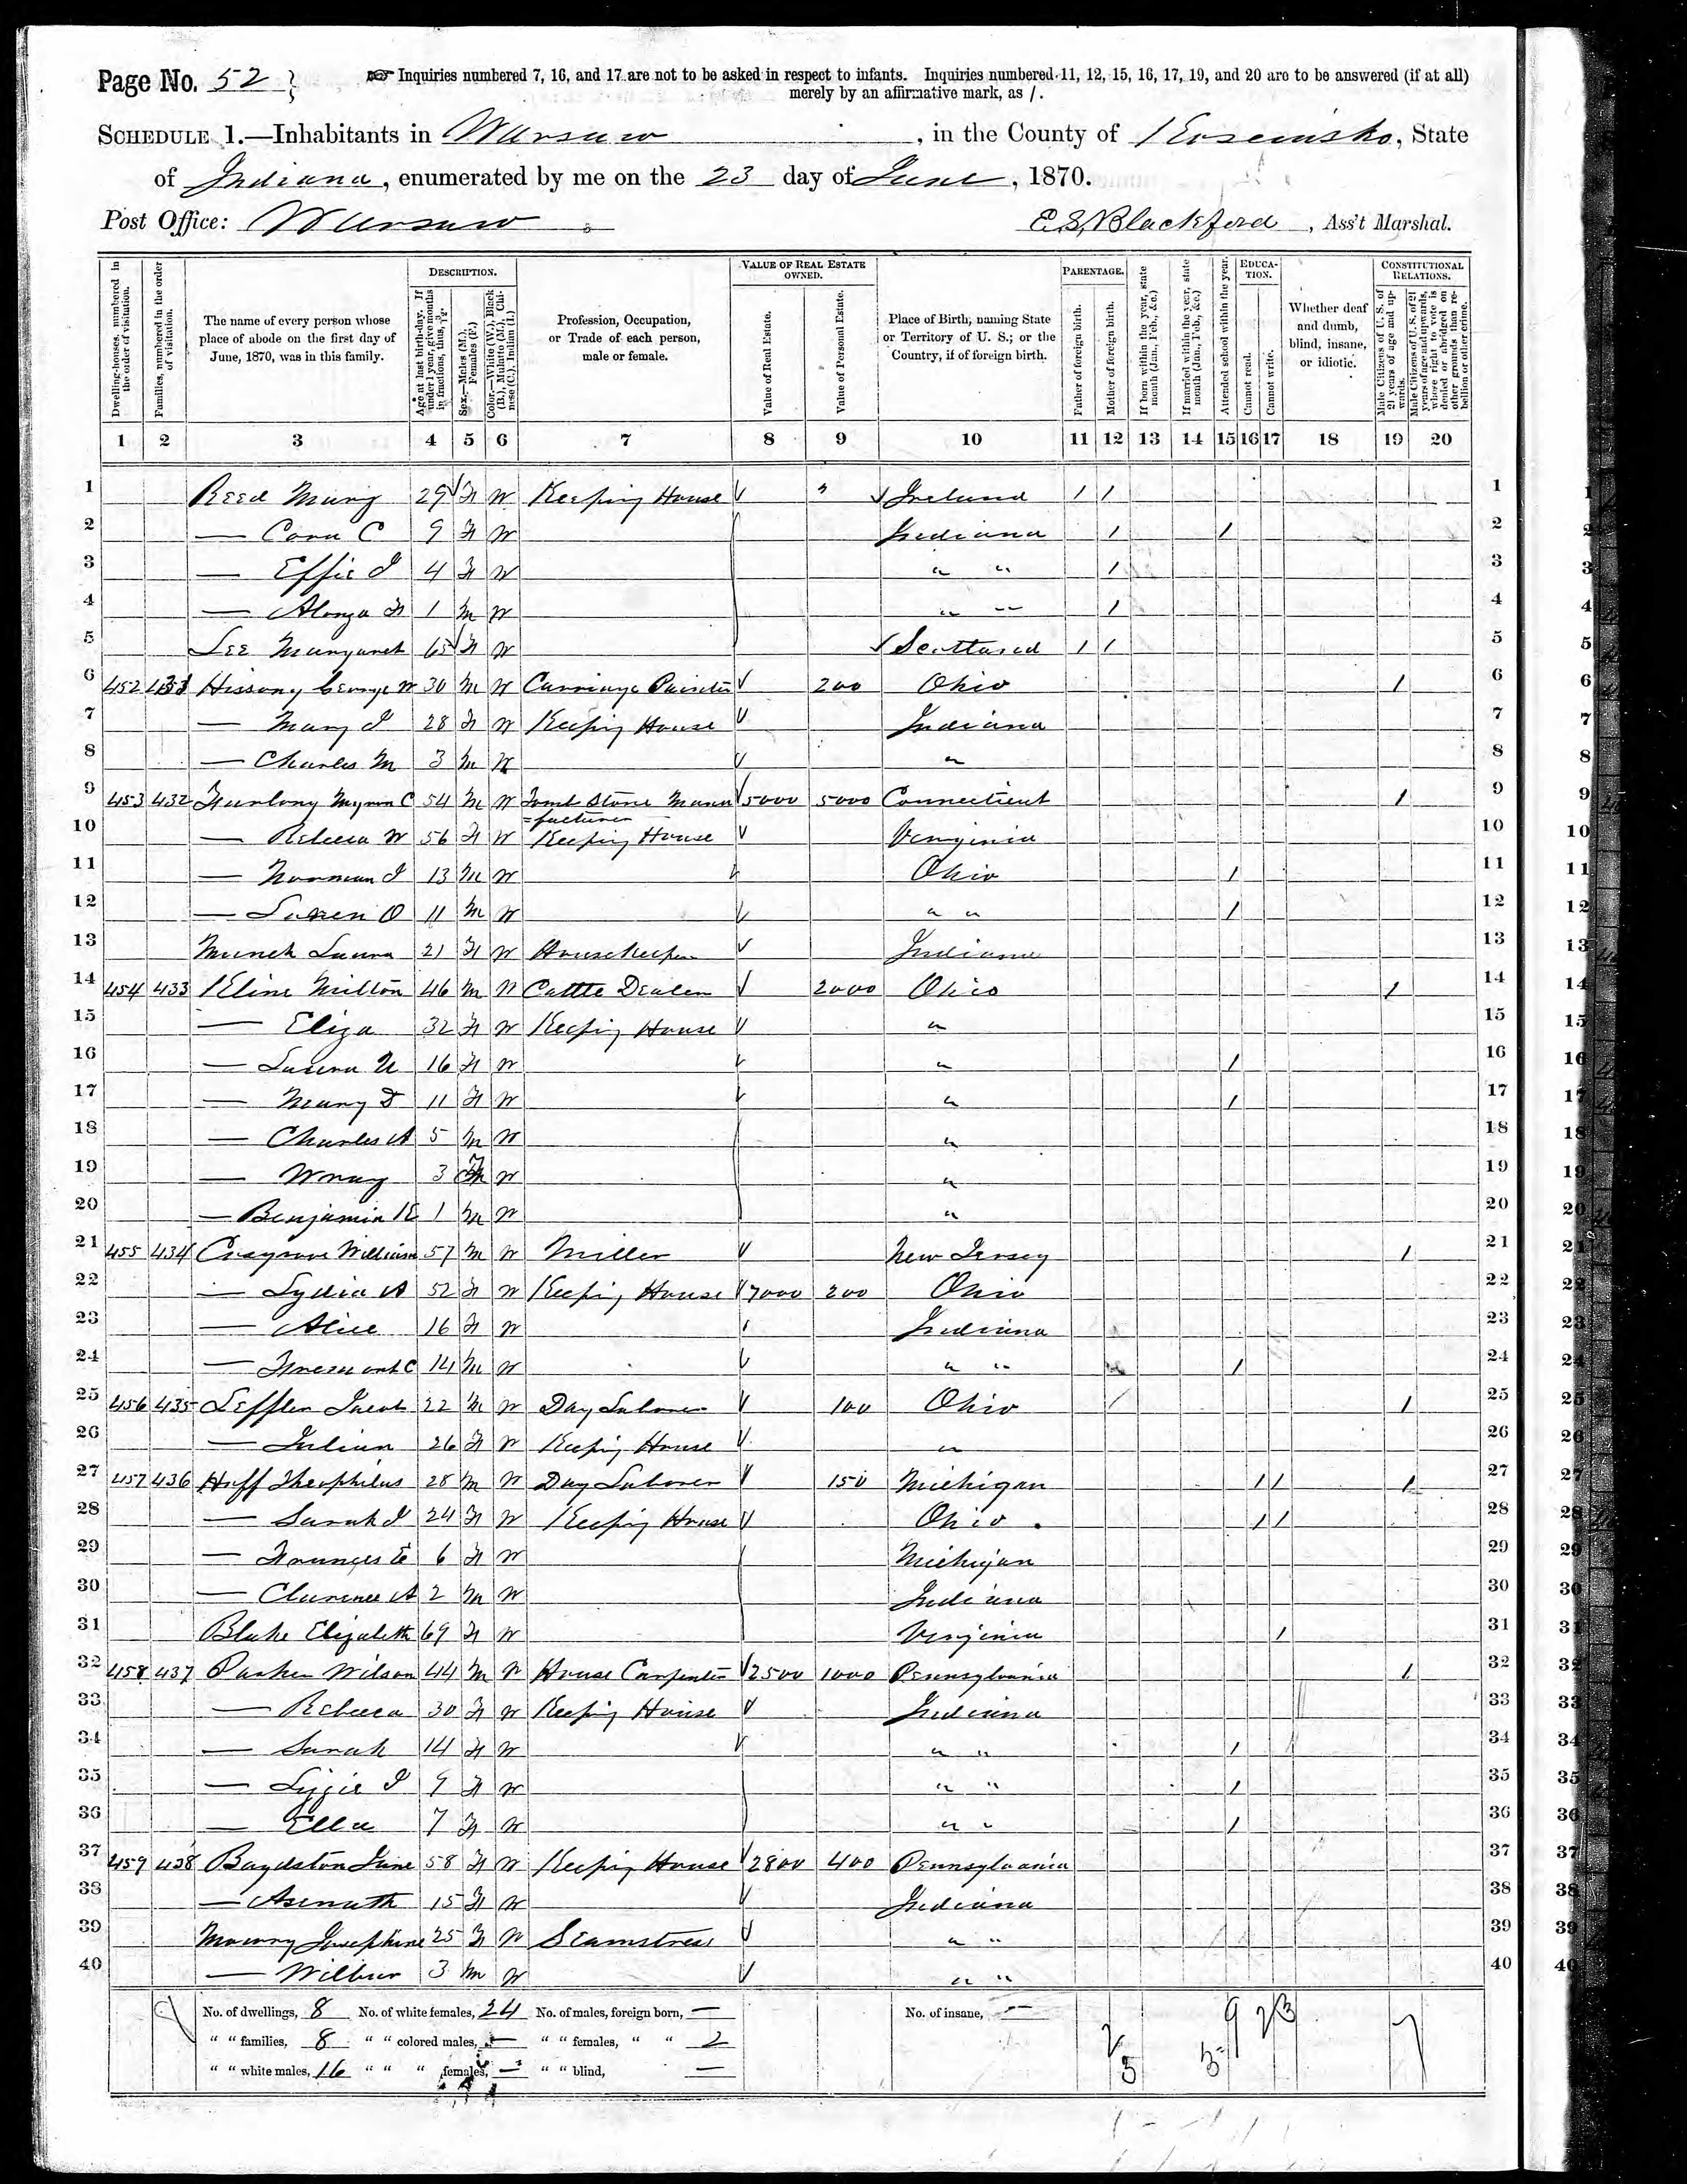 Page No. 52
☞ Inquiries numbered 7, 16, and 17 are not to be asked in respect to infants. Inquiries numbered 11, 12, 15, 16, 17, 19, and 20 are to be answered (if at all)
merely by an affirmative mark, as /.
SCHEDULE 1.—Inhabitants in Warsaw, in the County of Kosciusko, State
of Indiana, enumerated by me on the 23 day of June, 1870.
Post Office: Warsaw E. S. Blackford, Ass't Marshal.
Dwelling-houses, numbered in the order of visitation.
Families, numbered in the order of visitation.
The name of every person whose place of abode on the first day of June, 1870, was in this family.
DESCRIPTION.
Age at last birth-day. If under 1 year, give months in fractions, thus, 3/12.
Sex.—Males (M.), Females (F.)
Color.—White (W.), Black (B.), Mulatto (M.), Chinese (C.), Indian (I.)
Profession, Occupation, or Trade of each person, male or female.
VALUE OF REAL ESTATE OWNED.
Value of Real Estate.
Value of Personal Estate.
Place of Birth, naming State or Territory of U. S.; or the Country, if of foreign birth.
PARENTAGE.
Father of foreign birth.
Mother of foreign birth.
If born within the year, state month (Jan., Feb., &c.)
If married within the year, state month (Jan., Feb., &c.)
EDUCATION.
Attended school within the year.
Cannot read.
Cannot write.
Whether deaf and dumb, blind, insane, or idiotic.
CONSTITUTIONAL RELATIONS.
Male Citizens of U. S. of 21 years of age and upwards.
Male Citizens of U. S. of 21 years of age and upwards, whose right to vote is denied or abridged on other grounds than rebellion or other crime.
1 2 3 4 5 6 7 8 9 10 11 12 13 14 15 16 17 18 19 20
1 Reed Mary 29 F W Keeping House Ireland / / 1
2 — Cora C 9 F W Indiana / / 2
3 — Effie J 4 F W " " / 3
4 — Alonzo F 1 M W " " / 4
5 Lee Margaret 65 F W Scotland / / 5
6 452 431 Hissong George W 30 M W Carriage Painter 200 Ohio / 6
7 — Mary J 28 F W Keeping House Indiana 7
8 — Charles M 3 M W " 8
9 453 432 Furlong Myron C 54 M W Tomb Stone Manu 5000 5000 Connecticut / 9
=facturer
10 — Rebecca W 56 F W Keeping House Virginia 10
11 — Norman J 13 M W Ohio / 11
12 — O 11 M W " " / 12
13 Laura 21 F W Housekeeper Indiana 13
14 454 433 Kline Milton 46 M W Cattle Dealer 2000 Ohio / 14
15 — Eliza 32 F W Keeping House " 15
16 — Laura 16 F W " / 16
17 — Mary 11 F W " / 17
18 — Charles A 5 M W " 18
19 — Wray 3 F W " 19
20 — Benjamin K 1 M W " 20
21 455 434 Cosgrove William 57 M W Miller New Jersey / 21
22 — Lydia A 52 F W Keeping House 7000 200 Ohio 22
23 — Alice 16 F W Indiana 23
24 — Freemont C 14 M W " " / 24
25 456 435 Leffler Jacob 22 M W Day Laborer 100 Ohio / / 25
26 — Julian 26 F W Keeping House " 26
27 457 436 Huff Theophilus 28 M W Day Laborer 150 Michigan / / / 27
28 — Sarah J 24 F W Keeping House Ohio / / 28
29 — Frances E 6 F W Michigan 29
30 — Clarence A 2 M W Indiana 30
31 Blake Elizabeth 69 F W Virginia / 31
32 458 437 Parker Wilson 44 M W House Carpenter 2500 1000 Pennsylvania / 32
33 — Rebecca 30 F W Keeping House Indiana 33
34 — Sarah 14 F W " " / 34
35 — Lizzie J 9 F W " " / 35
36 — Ella 7 F W " " / 36
37 459 438 Baydston Jane 58 F W Keeping House 2800 400 Pennsylvania 37
38 — Asenath 15 F W Indiana 38
39 Josephine 25 F W Seamstress " " 39
40 — Wilbur 3 M W " " 40
No. of dwellings, 8 No. of white females, 24 No. of males, foreign born, — No. of insane, —
" " families, 8 " " colored males, — " " females, " " 2
" " white males, 16 " " " females, — " " blind, —